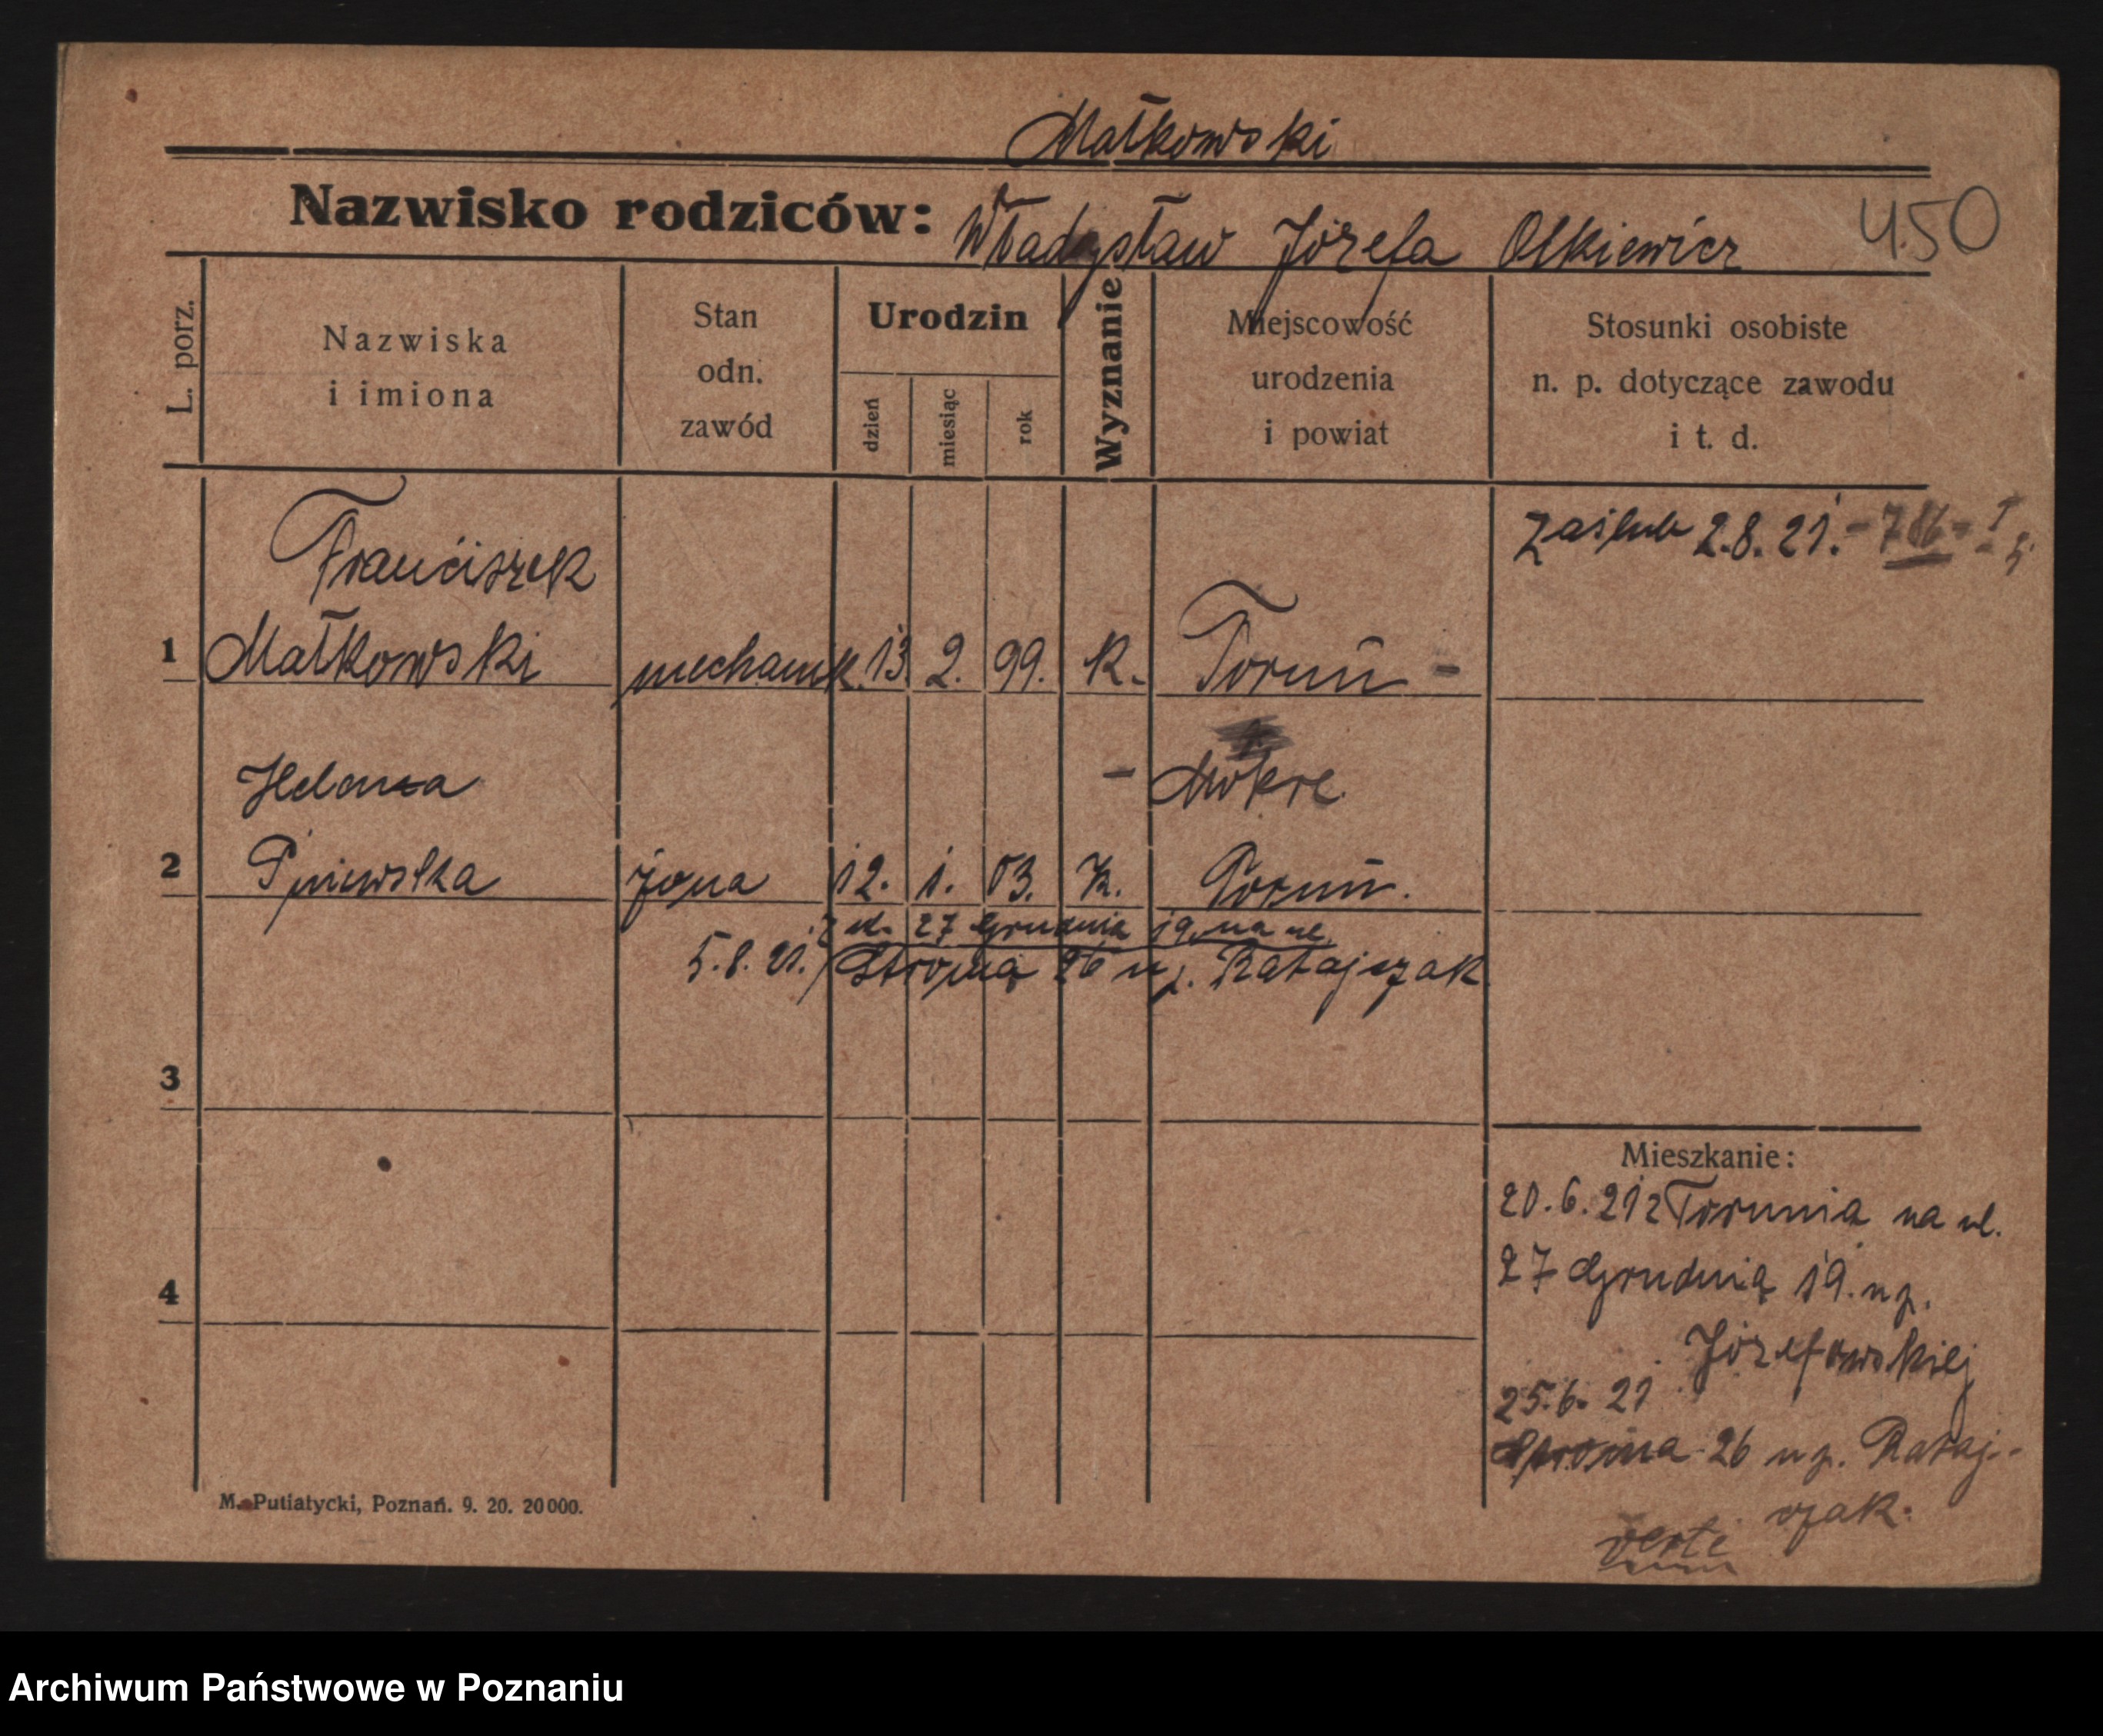 Małkowski
Nazwisko rodziców: Władysław Józefa Olkiewicz
450
L. porz.
Nazwiska
i imiona
Stan
odn.
zawód
Urodzin
dzień
miesiąc
rok
Wyznanie
Miejscowość
urodzenia
i powiat
Stosunki osobiste
n. p. dotyczące zawodu
i t. d.
Zaślub 2.8.21. - 786 -
Franciszek
1 Małkowski mechanik. 13. 2. 99. K. Toruń -
Helena - Mokre
2 Pniewska żona 12. 1. 03. K. Toruń.
27 Grudnia 19. na ul.
5.8.21. Stroma 26 u p. Ratajczak
3
4
Mieszkanie:
20.6.21 z Torunia na ul.
27 Grudnia 19. u p.
Józefowskiej
25.6.21
Stroma 26 u p. Rataj-
czak.
verte
M. Putiatycki, Poznań. 9. 20. 20000.
Archiwum Państwowe w Poznaniu